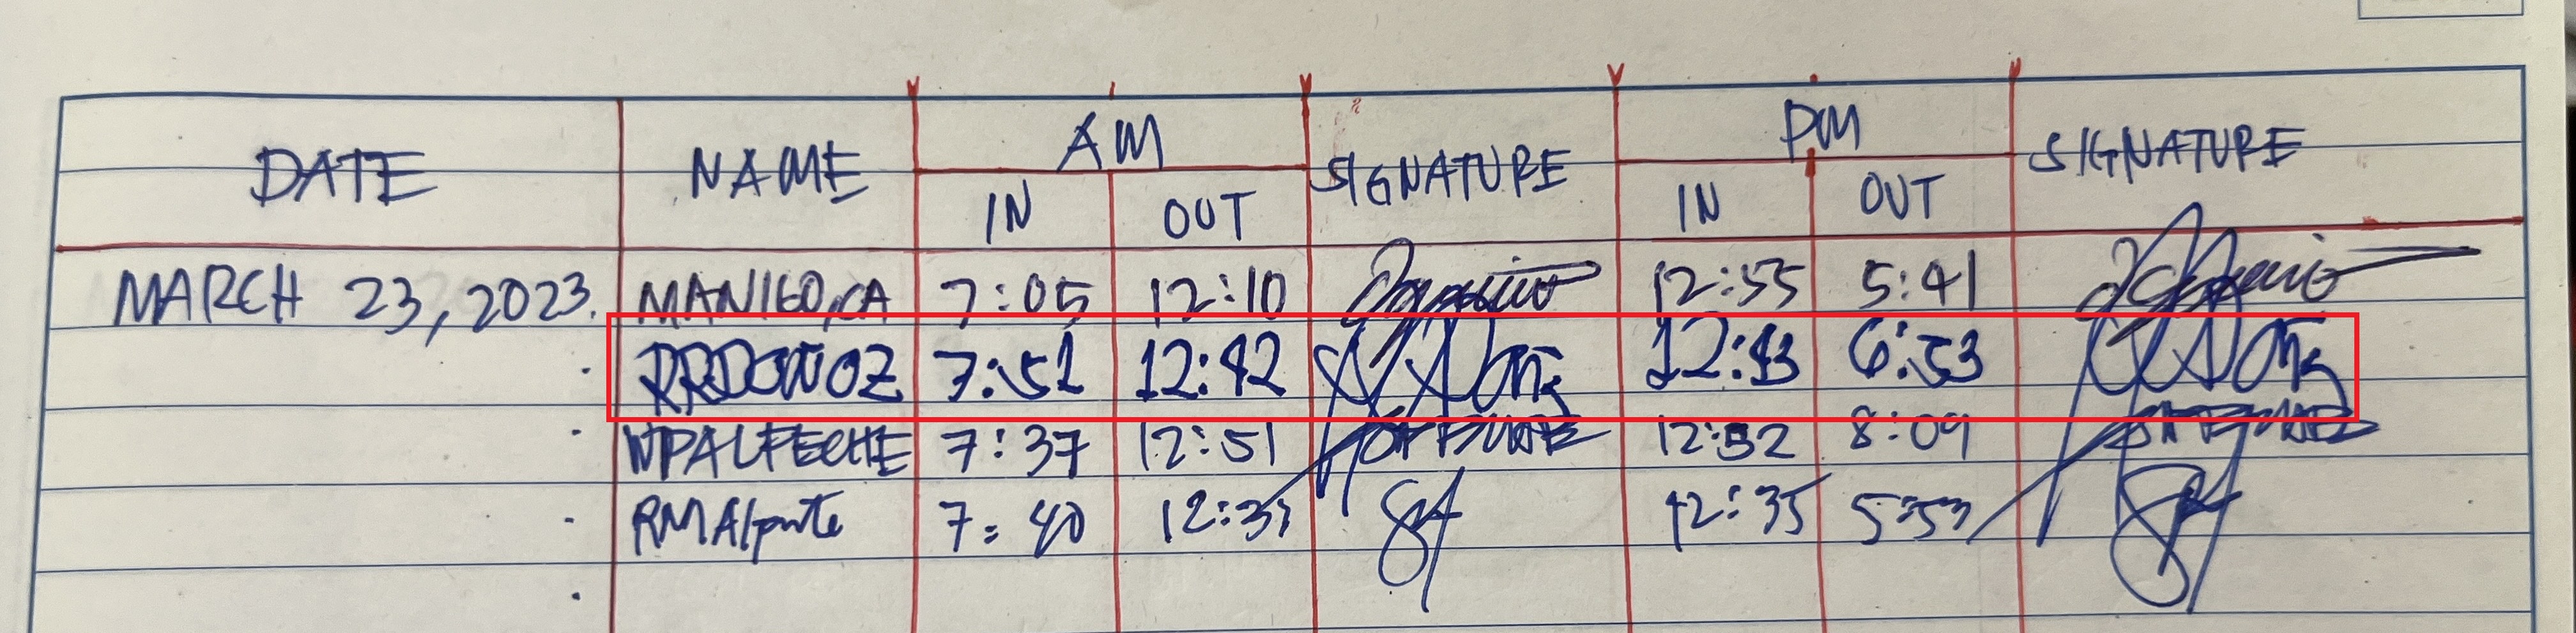 DATE NAME AM SIGNATURE PM SIGNATURE
IN OUT IN OUT
MARCH 23, 2023. MANIGO, CA 7:05 12:10 12:55 5:41
7:51 12:42 12:43 6:53
NPALFECHE 7:37 12:51 12:52 8:09
RMAlpute 7:40 12:35 12:35 5:53